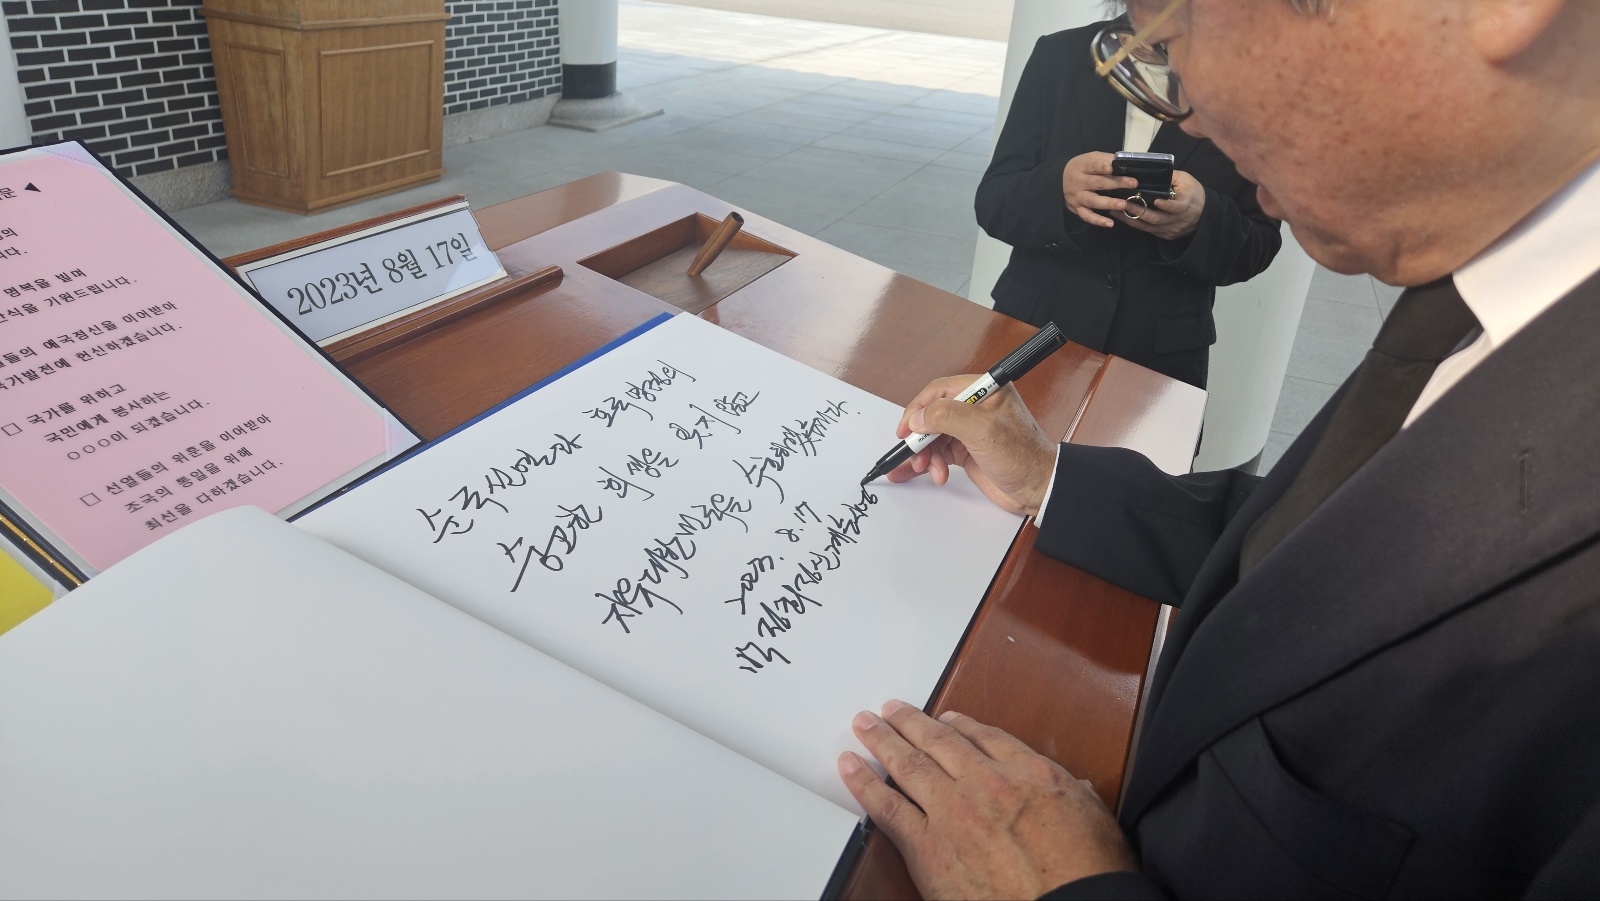 문 ◀
의
니다.
명복을 빌며
안식을 기원드립니다.
선열들의 애국정신을 이어받아
국가발전에 헌신하겠습니다.
□ 국가를 위하고
국민에게 봉사하는
○○○이 되겠습니다.
□ 선열들의 위훈을 이어받아
조국의 통일을 위해
최선을 다하겠습니다.
2023년 8월 17일
순국선열과 호국영령의
숭고한 희생을 잊지 않고
자유대한민국을 수호하겠습니다.
2023. 8. 17